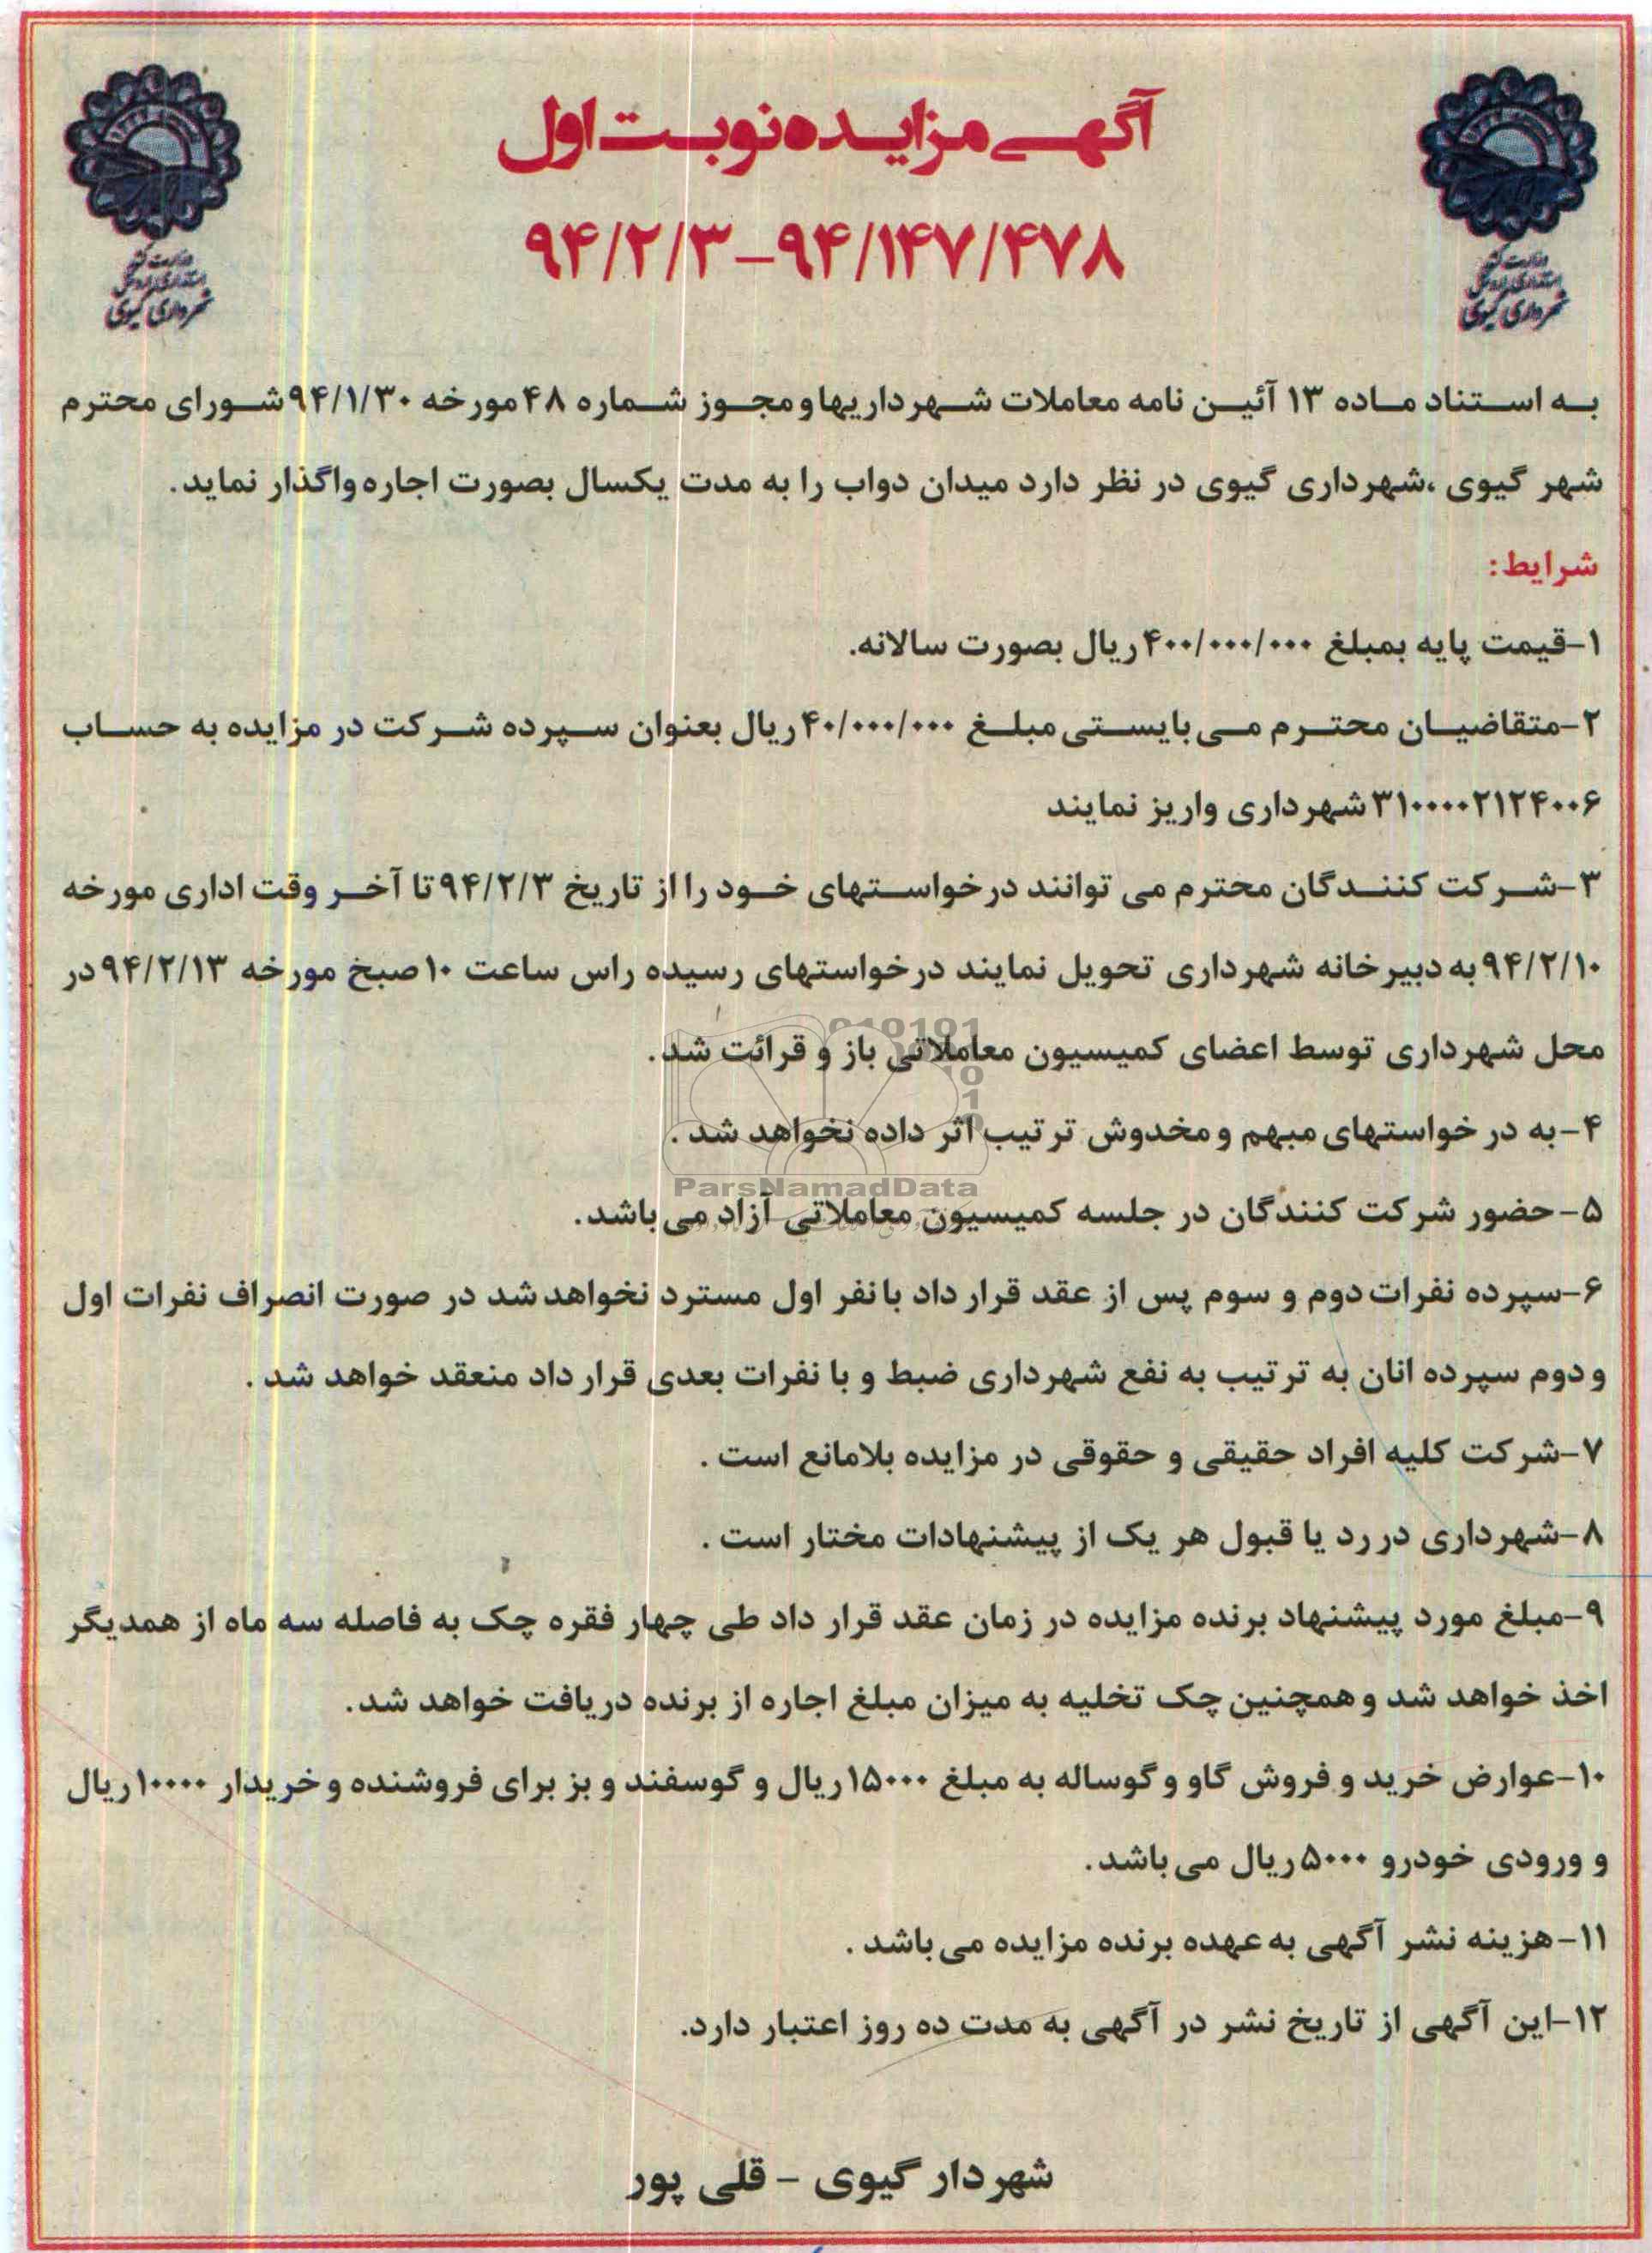 آگهی مزایده نوبت اول
۹۴/۲/۳-۹۴/۱۴۷/۴۷۸
وزارت کشور
استانداری اردبیل
شهرداری گیوی
وزارت کشور
استانداری اردبیل
شهرداری گیوی
به استناد ماده ۱۳ آئین نامه معاملات شهرداریها و مجوز شماره ۴۸ مورخه ۹۴/۱/۳۰ شورای محترم
شهر گیوی ،شهرداری گیوی در نظر دارد میدان دواب را به مدت یکسال بصورت اجاره واگذار نماید.
شرایط:
۱-قیمت پایه بمبلغ ۴۰۰/۰۰۰/۰۰۰ ریال بصورت سالانه.
۲-متقاضیان محترم می بایستی مبلغ ۴۰/۰۰۰/۰۰۰ ریال بعنوان سپرده شرکت در مزایده به حساب
۳۱۰۰۰۰۲۱۲۴۰۰۶ شهرداری واریز نمایند
۳-شرکت کنندگان محترم می توانند درخواستهای خود را از تاریخ ۹۴/۲/۳ تا آخر وقت اداری مورخه
۹۴/۲/۱۰ به دبیرخانه شهرداری تحویل نمایند درخواستهای رسیده راس ساعت ۱۰ صبخ مورخه ۹۴/۲/۱۳ در
محل شهرداری توسط اعضای کمیسیون معاملاتی باز و قرائت شد.
۴-به در خواستهای مبهم و مخدوش ترتیب اثر داده نخواهد شد .
ParsNamadData
۵-حضور شرکت کنندگان در جلسه کمیسیون معاملاتی آزاد می باشد.
۶-سپرده نفرات دوم و سوم پس از عقد قرار داد با نفر اول مسترد نخواهد شد در صورت انصراف نفرات اول
و دوم سپرده انان به ترتیب به نفع شهرداری ضبط و با نفرات بعدی قرار داد منعقد خواهد شد .
۷-شرکت کلیه افراد حقیقی و حقوقی در مزایده بلامانع است .
۸-شهرداری در رد یا قبول هر یک از پیشنهادات مختار است .
۹-مبلغ مورد پیشنهاد برنده مزایده در زمان عقد قرار داد طی چهار فقره چک به فاصله سه ماه از همدیگر
اخذ خواهد شد و همچنین چک تخلیه به میزان مبلغ اجاره از برنده دریافت خواهد شد.
۱۰-عوارض خرید و فروش گاو و گوساله به مبلغ ۱۵۰۰۰ ریال و گوسفند و بز برای فروشنده و خریدار ۱۰۰۰۰ ریال
و ورودی خودرو ۵۰۰۰ ریال می باشد.
۱۱-هزینه نشر آگهی به عهده برنده مزایده می باشد .
۱۲-این آگهی از تاریخ نشر در آگهی به مدت ده روز اعتبار دارد.
شهردار گیوی - قلی پور